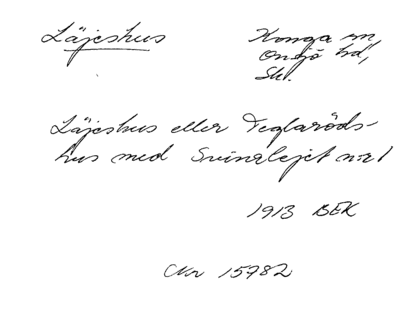 Läjeshus
Konga sn
Onsjö hd,
Sk.
Läjeshus eller Teglaröds-
hus med Svinalejet nr 1
1913 BEK
Nr 15782